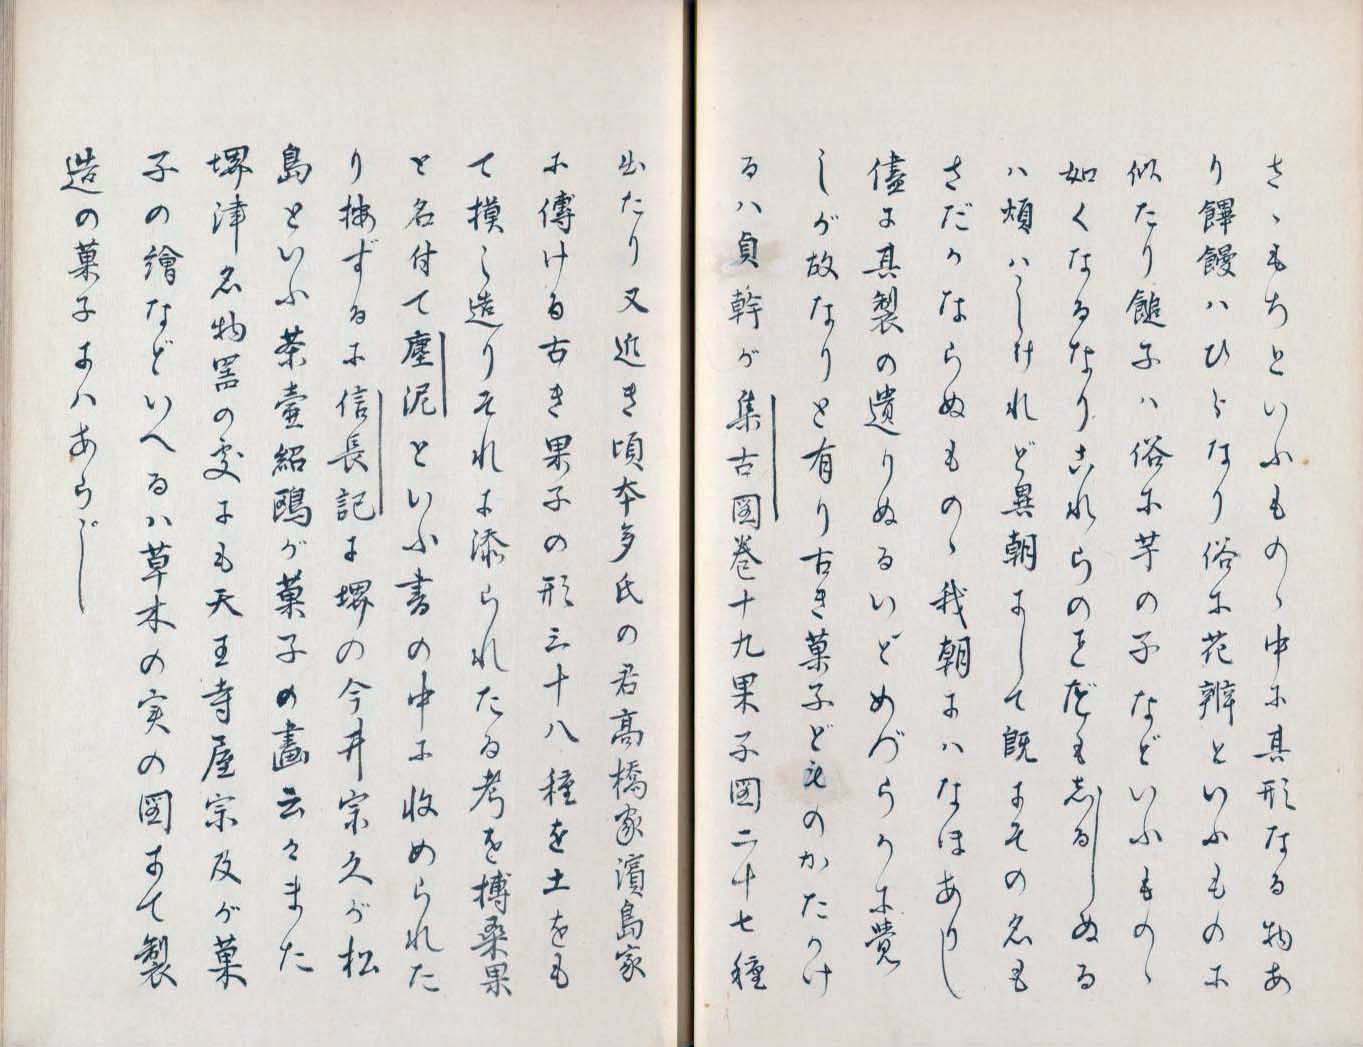 さゝもちといふものゝ中に其形なる物あ
り饆饠ハひらなり俗に花辨といふものに
似たり餛子ハ俗に芋の子などいふものゝ
如くなるなりこれらのさだも志るしぬる
ハ煩ハしけれど異朝にして既にその名も
さだかならぬものゝ我朝にハなほありし
儘に其製の遺りぬるいとめづらかに覺
しが故なりと有り古き菓子どものかたかけ
るハ貞幹が集古圖巻十九果子図二十七種
出たり又近き頃本多氏の君高橋家濱島家
に傳ける古き果子の形三十八種を土をも
て摸し造りそれに添られたる考を搏桑果
と名付て塵泥といふ書の中に收められた
り按ずるに信長記に堺の今井宗久が松
島といふ茶壷紹鴎が菓子の畫云々また
堺津名物罟の処にも天王寺屋宗及が菓
子の繪などいへるハ草木の実の図にて製
造の菓子にハあらじ